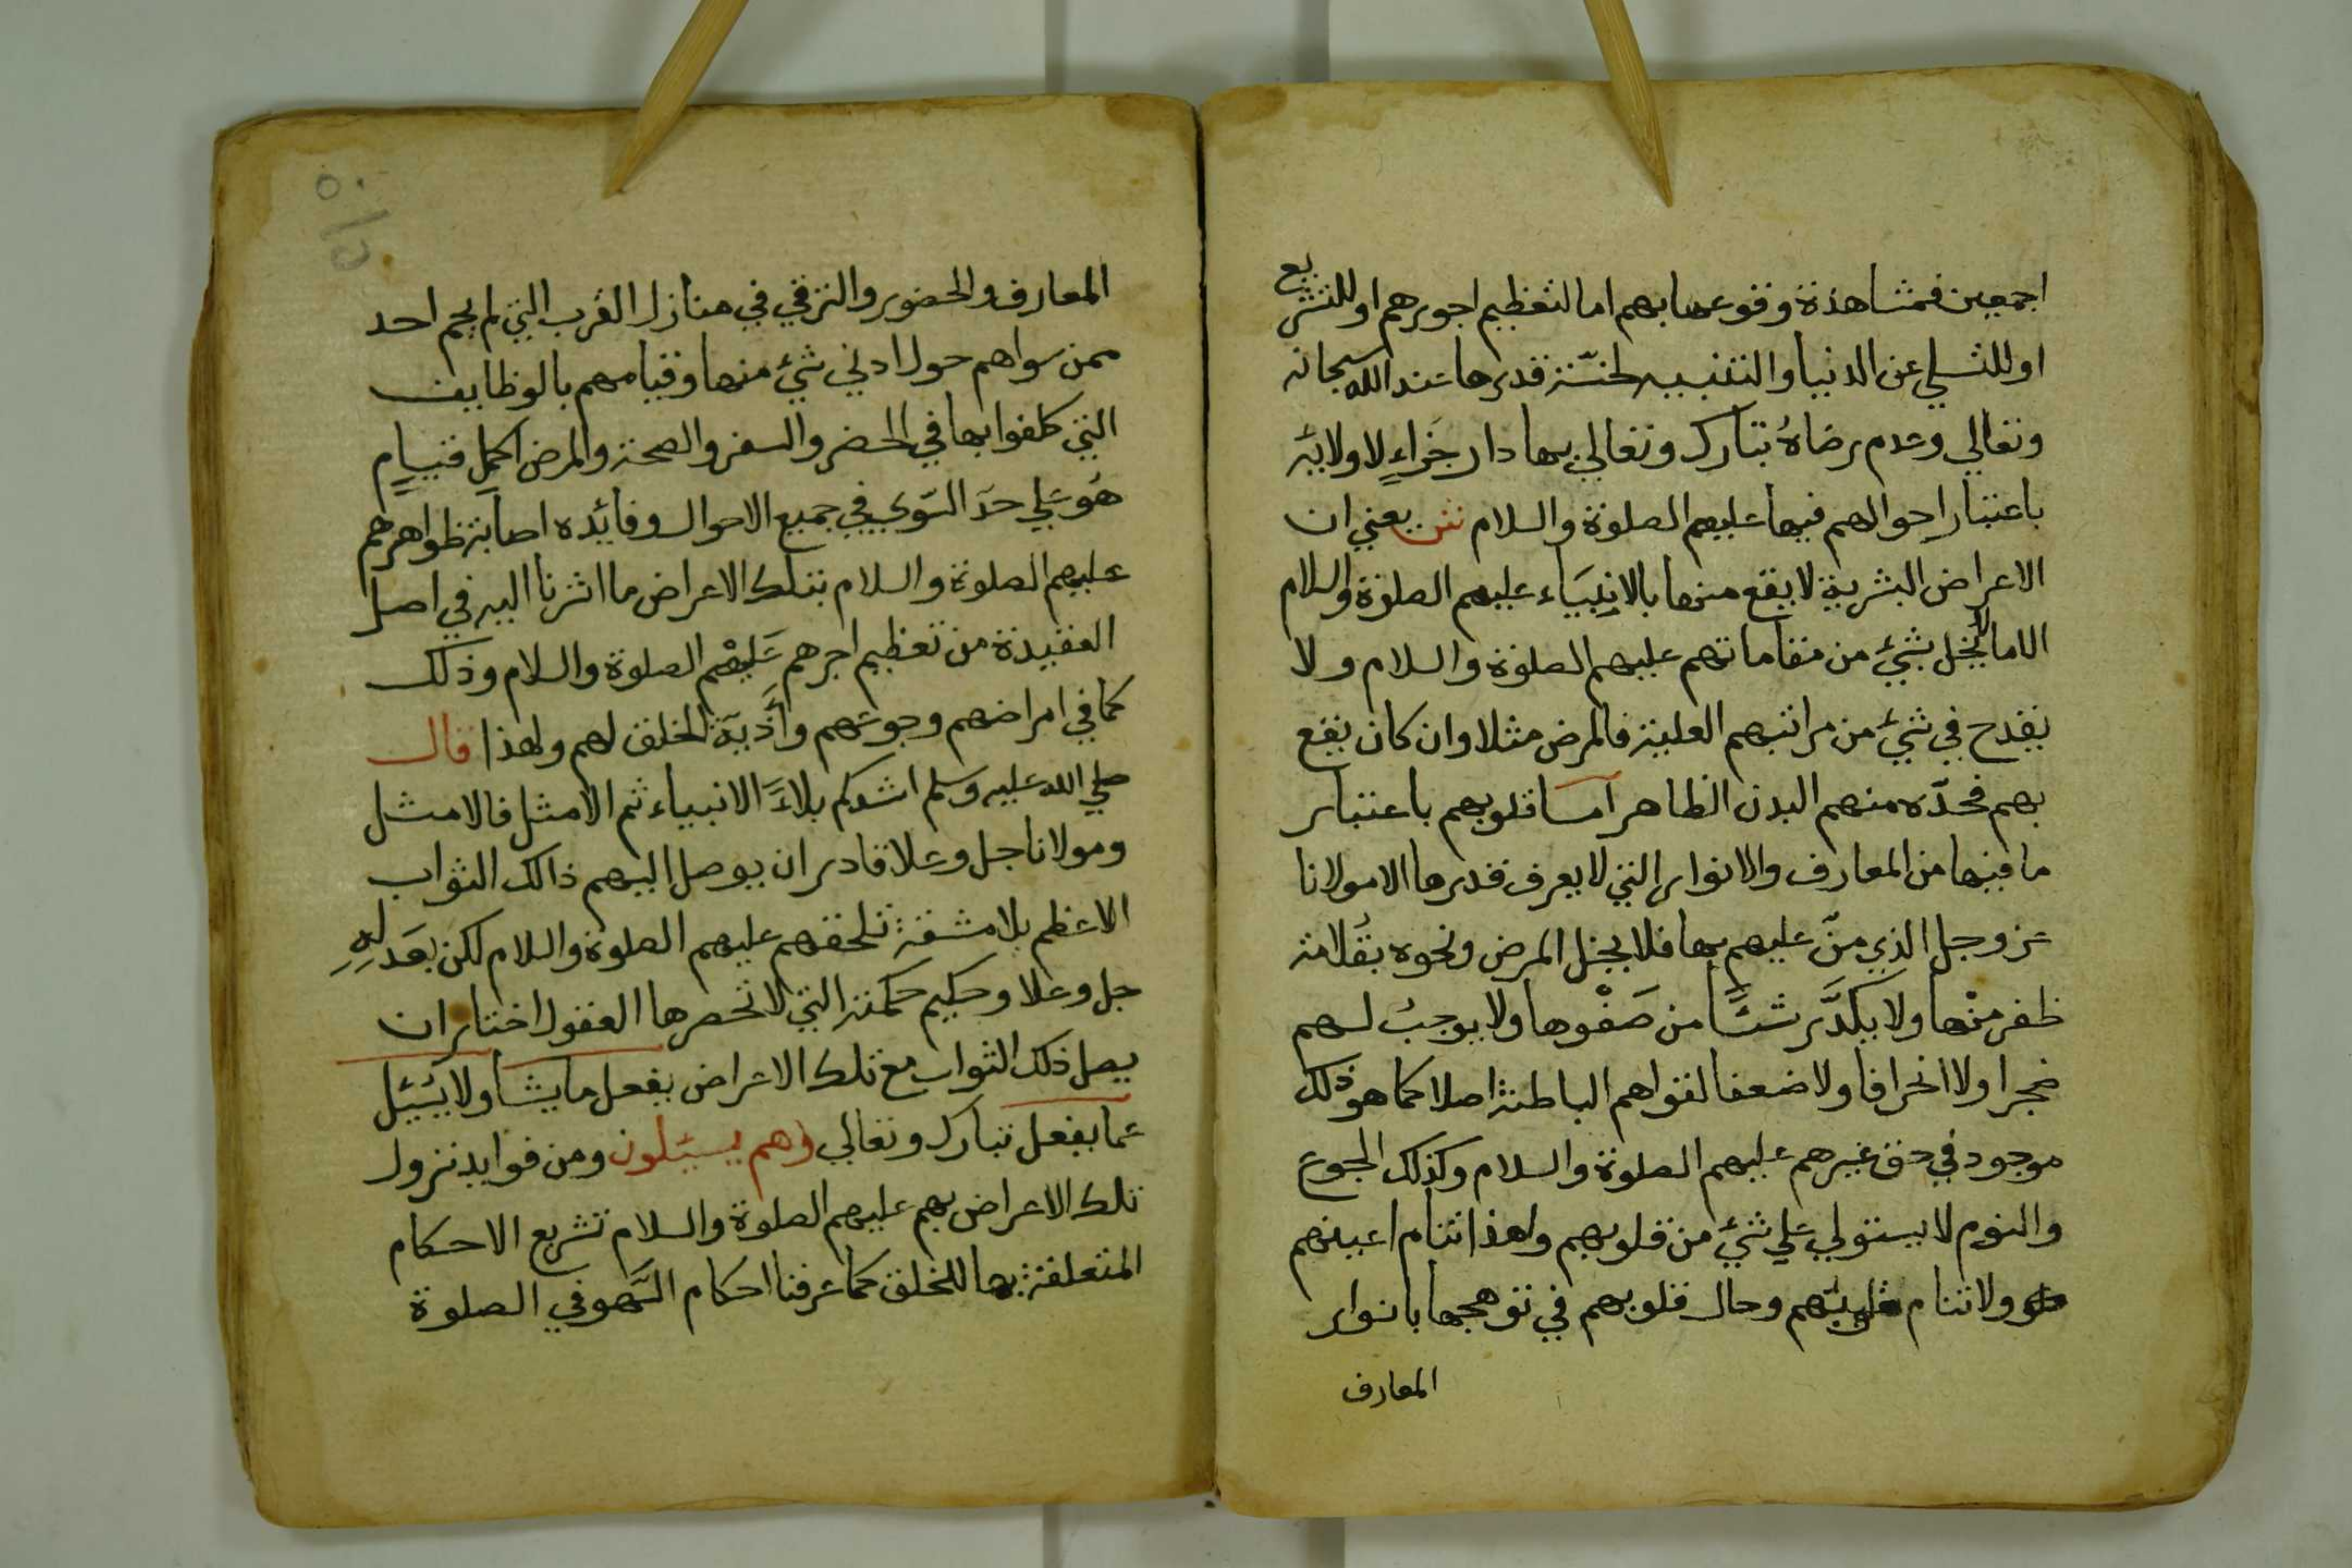 اجمعين فمشاهدة وقوعها بهم اما لتعظيم اجورهم او للتشريع
او للتسلي عن الدنيا والتنبيه لخسّة قدرها عند الله سبحانه
وتعالي وعدم رضاهُ تبارك وتعالي بها دار جزاءٍ لاوليائه
باعتبار احوالهم فيها عليهم الصلوة والسلام ش يعني ان
الاعراض البشرية لا يقع منها بالانبيَاء عليهم الصلوة والسلام
الا ما لا يخل بشيء من مقاماتهم عليهم الصلوة والسلام ولا
يقدح في شيء من مراتبهم العلية فالمرض مثلا وان كان يقع
بهم فحدّه منهم البدن الظاهر اما قلوبهم باعتبار
ما فيها من المعارف والانوار التي لا يعرف قدرها الا مولانا
عز وجل الذي منّ عليهم بها فلا يخل المرض ونحوه بقُلامة
ظفر منْها ولا يكدَّر شئًا من صَفْوها ولا يوجبُ لهم
ضجرا ولا انحرافا ولا ضعفا لقواهم الباطنة اصلا كما هو ذلك
موجود في حق غيرهم عليهم الصلوة والسلام وكذلك الجوع
والنوم لا يستولي علي شيء من قلوبهم ولهذا تنام اعينهم
ولا تنام قلوبهم وحال قلوبهم في توهجها بانوار
المعارف
المعارف والحضور والترقي في منازل القرب التي لم يحم احد
ممن سواهم حول ادني شيء منها وقيامهم بالوظايف
التي كلفوا بها في الحضر والسفر والصحة والمرض اكمل قيام
هُو علي حدَ السّوي في جميع الاحوال وفائده اصابة ظواهرهم
عليهم الصلوة والسلام بتلك الاعراض ما اشرنا اليه في اصل
العقيدة من تعظيم اجرهم عَليْهم الصلوة والسلام وذلك
كما في امراضهم وجوعهم واَذية الخلق لهم ولهذا قال
صلي الله عليه وسلم اشدكم بلاءَ الانبياء ثم الامثل فالامثل
ومولانا جل وعلا قادر ان يوصل اليهم ذالك الثواب
الاعظم بلا مشقة تلحقهم عليهم الصلوة والسلام لكن بعَدلِهِ
جل وعلا وحكيم حكمته التي لا تحصرها العقول اختار ان
يصل ذلك الثواب مع تلك الاعراض يفعل ما يشا ولا يُسْئل
عما يفعل تبارك وتعالي وهم يسئلون ومن فوايد نزول
تلك الاعراض بهم عليهم الصلوة والسلام تشريع الاحكام
المتعلقة بها للخلق كما عرفنا احكام السّهو في الصلوة